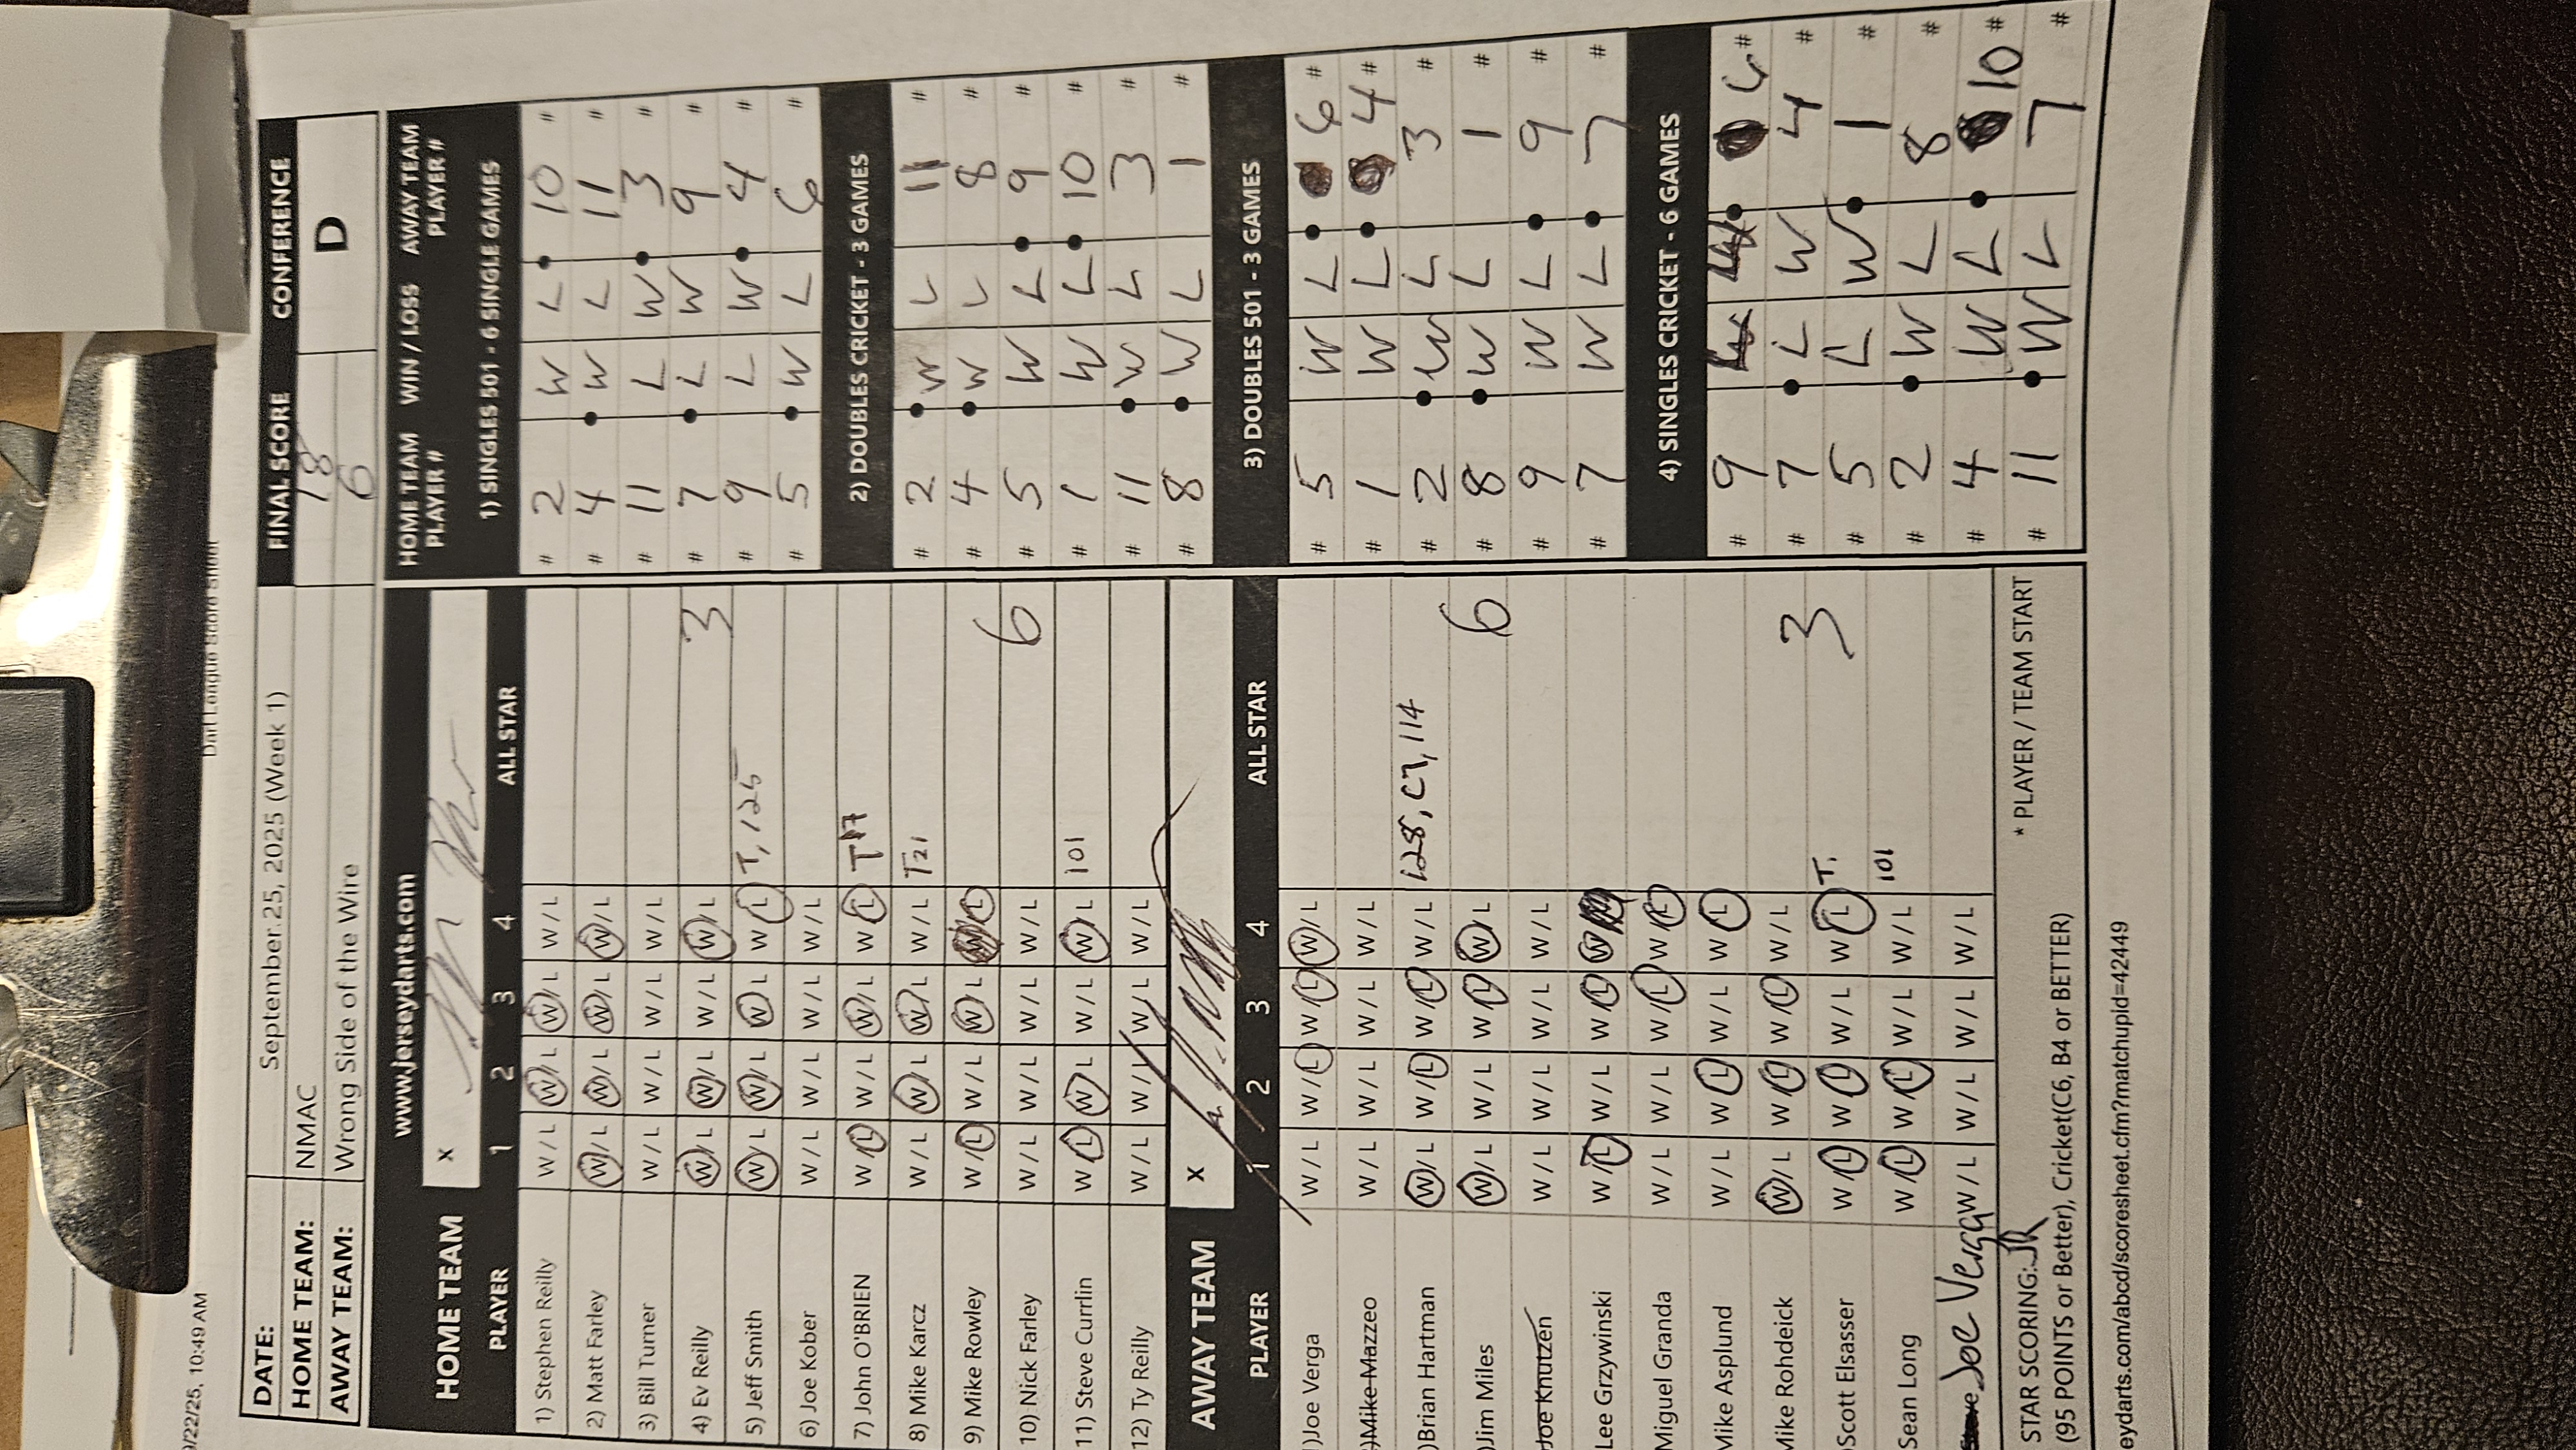 9/22/25, 10:49 AM
Dart League Score Sheet
DATE: September 25, 2025 (Week 1)
FINAL SCORE CONFERENCE
HOME TEAM: NMAC 18 D
AWAY TEAM: Wrong Side of the Wire 6
www.jerseydarts.com
HOME TEAM X
PLAYER 1 2 3 4 ALL STAR
1) Stephen Reilly W / L W / L W / L W / L
2) Matt Farley W / L W / L W / L W / L
3) Bill Turner W / L W / L W / L W / L
4) Ev Reilly W / L W / L W / L W / L 3
5) Jeff Smith W / L W / L W / L W / L T, 125
6) Joe Kober W / L W / L W / L W / L
7) John O'BRIEN W / L W / L W / L W / L T17
8) Mike Karcz W / L W / L W / L W / L T21
9) Mike Rowley W / L W / L W / L W / L
10) Nick Farley W / L W / L W / L W / L 6
11) Steve Currlin W / L W / L W / L W / L 101
12) Ty Reilly W / L W / L W / L W / L
AWAY TEAM X
PLAYER 1 2 3 4 ALL STAR
)Joe Verga W / L W / L W / L W / L
)Mike Mazzeo W / L W / L W / L W / L
)Brian Hartman W / L W / L W / L W / L 128, C7, 114
)Jim Miles W / L W / L W / L W / L 6
Joe Knutzen W / L W / L W / L W / L
Lee Grzywinski W / L W / L W / L
Miguel Granda W / L W / L W / L W / L
Mike Asplund W / L W / L W / L W / L
Mike Rohdeick W / L W / L W / L W / L 3
)Scott Elsasser W / L W / L W / L W / L T,
Sean Long W / L W / L W / L W / L 101
Joe Verga W / L W / L W / L W / L
JR
STAR SCORING: * PLAYER / TEAM START
(95 POINTS or Better), Cricket(C6, B4 or BETTER)
eydarts.com/abcd/scoresheet.cfm?matchupid=42449
HOME TEAM PLAYER # WIN / LOSS AWAY TEAM PLAYER #
1) SINGLES 501 - 6 SINGLE GAMES
# 2 W L 10 #
# 4 W L 11 #
# 11 L W 3 #
# 7 L W 9 #
# 9 L W 4 #
# 5 W L 6 #
2) DOUBLES CRICKET - 3 GAMES
# 2 W L 11 #
# 4 W L 8 #
# 5 W L 9 #
# 1 W L 10 #
# 11 W L 3 #
# 8 W L 1 #
3) DOUBLES 501 - 3 GAMES
# 5 W L 6 #
# 1 W L 4 #
# 2 W L 3 #
# 8 W L 1 #
# 9 W L 9 #
# 7 W L 7 #
4) SINGLES CRICKET - 6 GAMES
# 9 6 #
# 7 L W 4 #
# 5 L W 1 #
# 2 W L 8 #
# 4 W L 10 #
# 11 W L 7 #